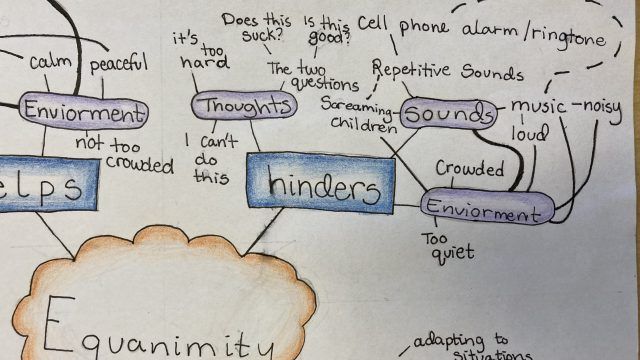 Does this suck?
Is this good?
Cell phone alarm/ringtone
it's too hard
The two questions
Repetitive Sounds
calm
peaceful
Enviorment
Thoughts
Screaming children
Sounds
music - noisy
loud
not too crowded
I can't do this
elps
hinders
Crowded
Enviorment
Too quiet
Equanimity
adapting to situations